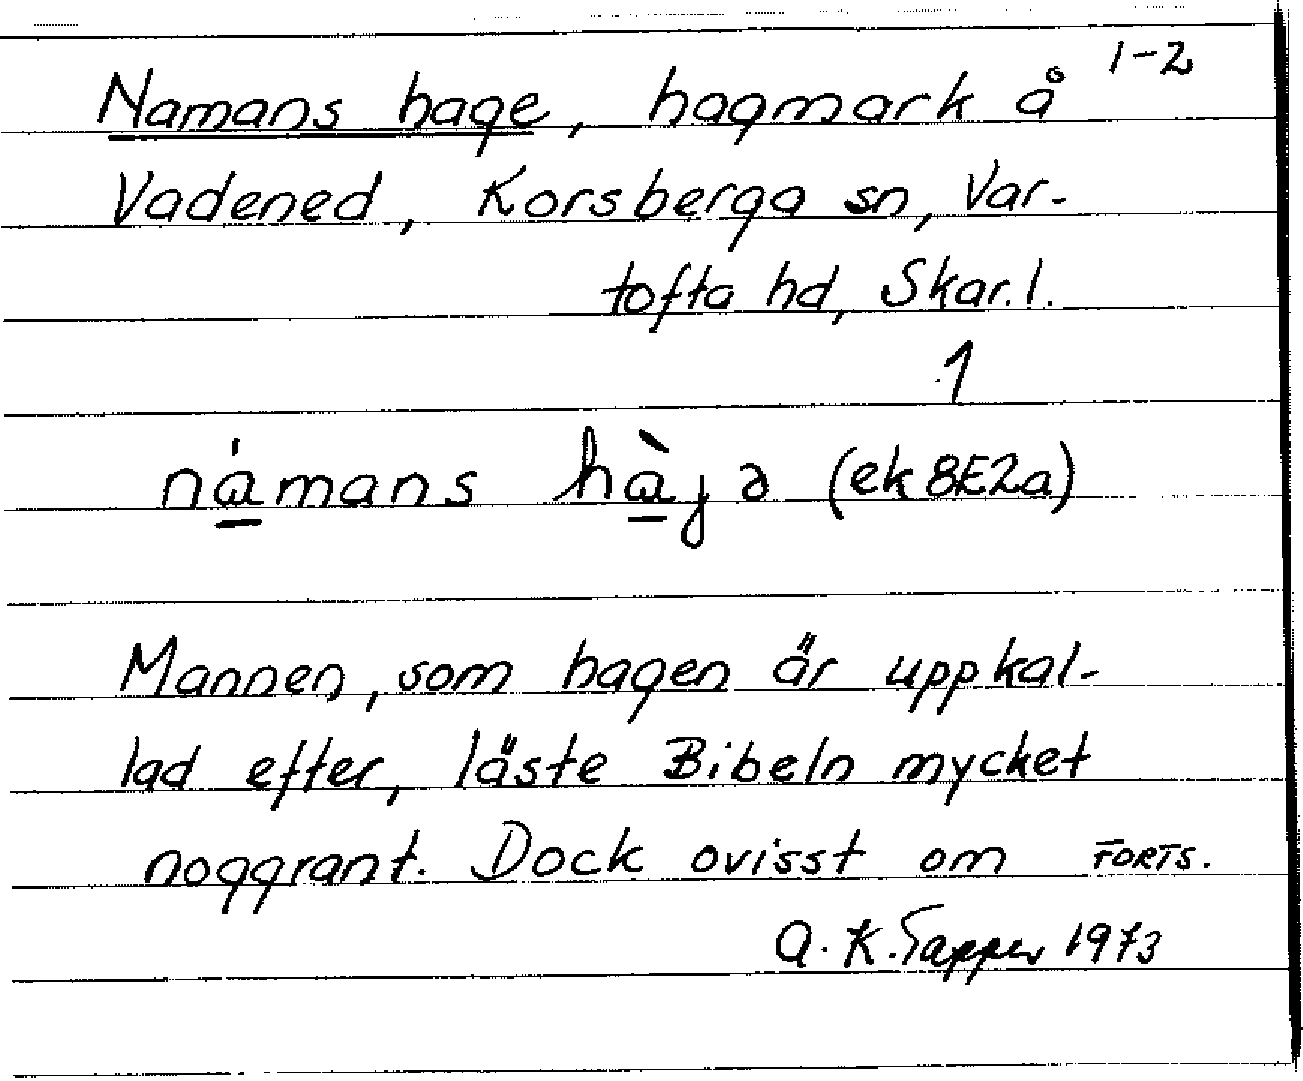 1-2
Namans hage, hagmark å
Vadened, Korsberga sn, Var-
tofta hd, Skar.l.
1
námans hàjə (ek 8E2a)
Mannen, som hagen är uppkal-
lad efter, läste Bibeln mycket
noggrant. Dock ovisst om FORTS.
A.K. Tapper 1973